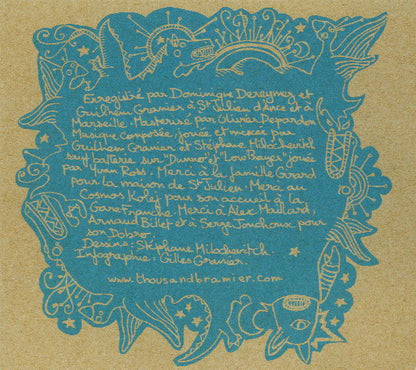 Enregistré par Dominique Dereymez et
Guilhem Granier à St Julien d'Ance et à
Marseille. Masterisé par Olivier Depardon
Musique composée, jouée et mixée par
Guilhem Granier et Stéphane Milochevitch
sauf batterie sur "Dunno" et "Low Prayer" jouée
par Yvan Rossi. Merci à la famille Girard
pour la maison de St Julien. Merci au
Cosmos Kolej pour son accueil à la
Gare Franche. Merci à Alex Maillard,
Arnaud Billet et à Serge Tonchoux pour
son Dobro.
Dessins : Stéphane Milochevitch.
Infographie : Gilles Granier.
www.thousandbramier.com